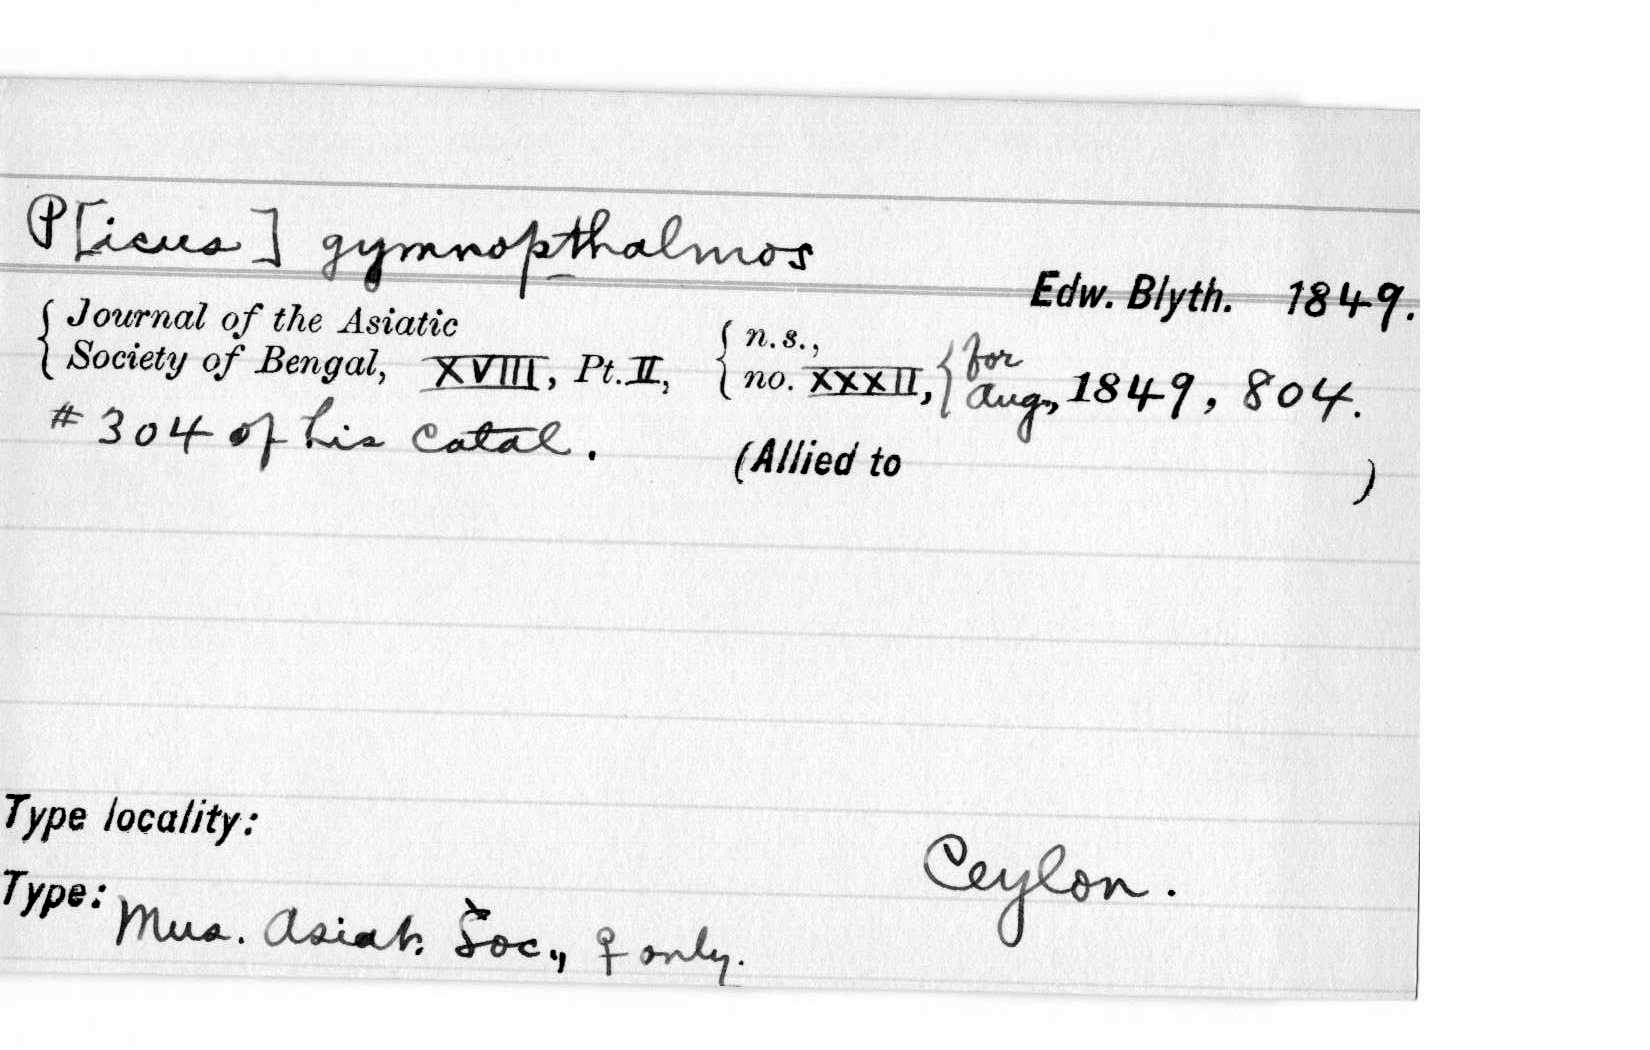 P[icus] gymnopthalmos
Edw. Blyth. 1849.
Journal of the Asiatic
Society of Bengal, XVIII, Pt. II, { n.s., no. XXXII, { for Aug., 1849, 804.
# 304 of his Catal. (Allied to )
Type locality:
Ceylon.
Type: Mus. Asiat. Soc., ♀ only.